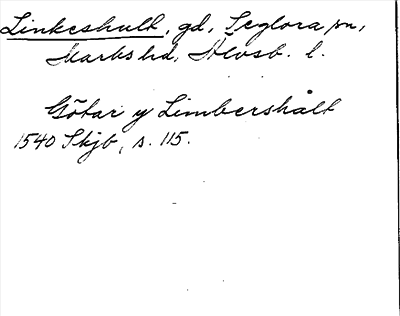 Linkeshult, gd, Seglora sn,
Marks hd, Älvsb. l.
Götar y Limbershålt
1540 Skjb, s. 115.